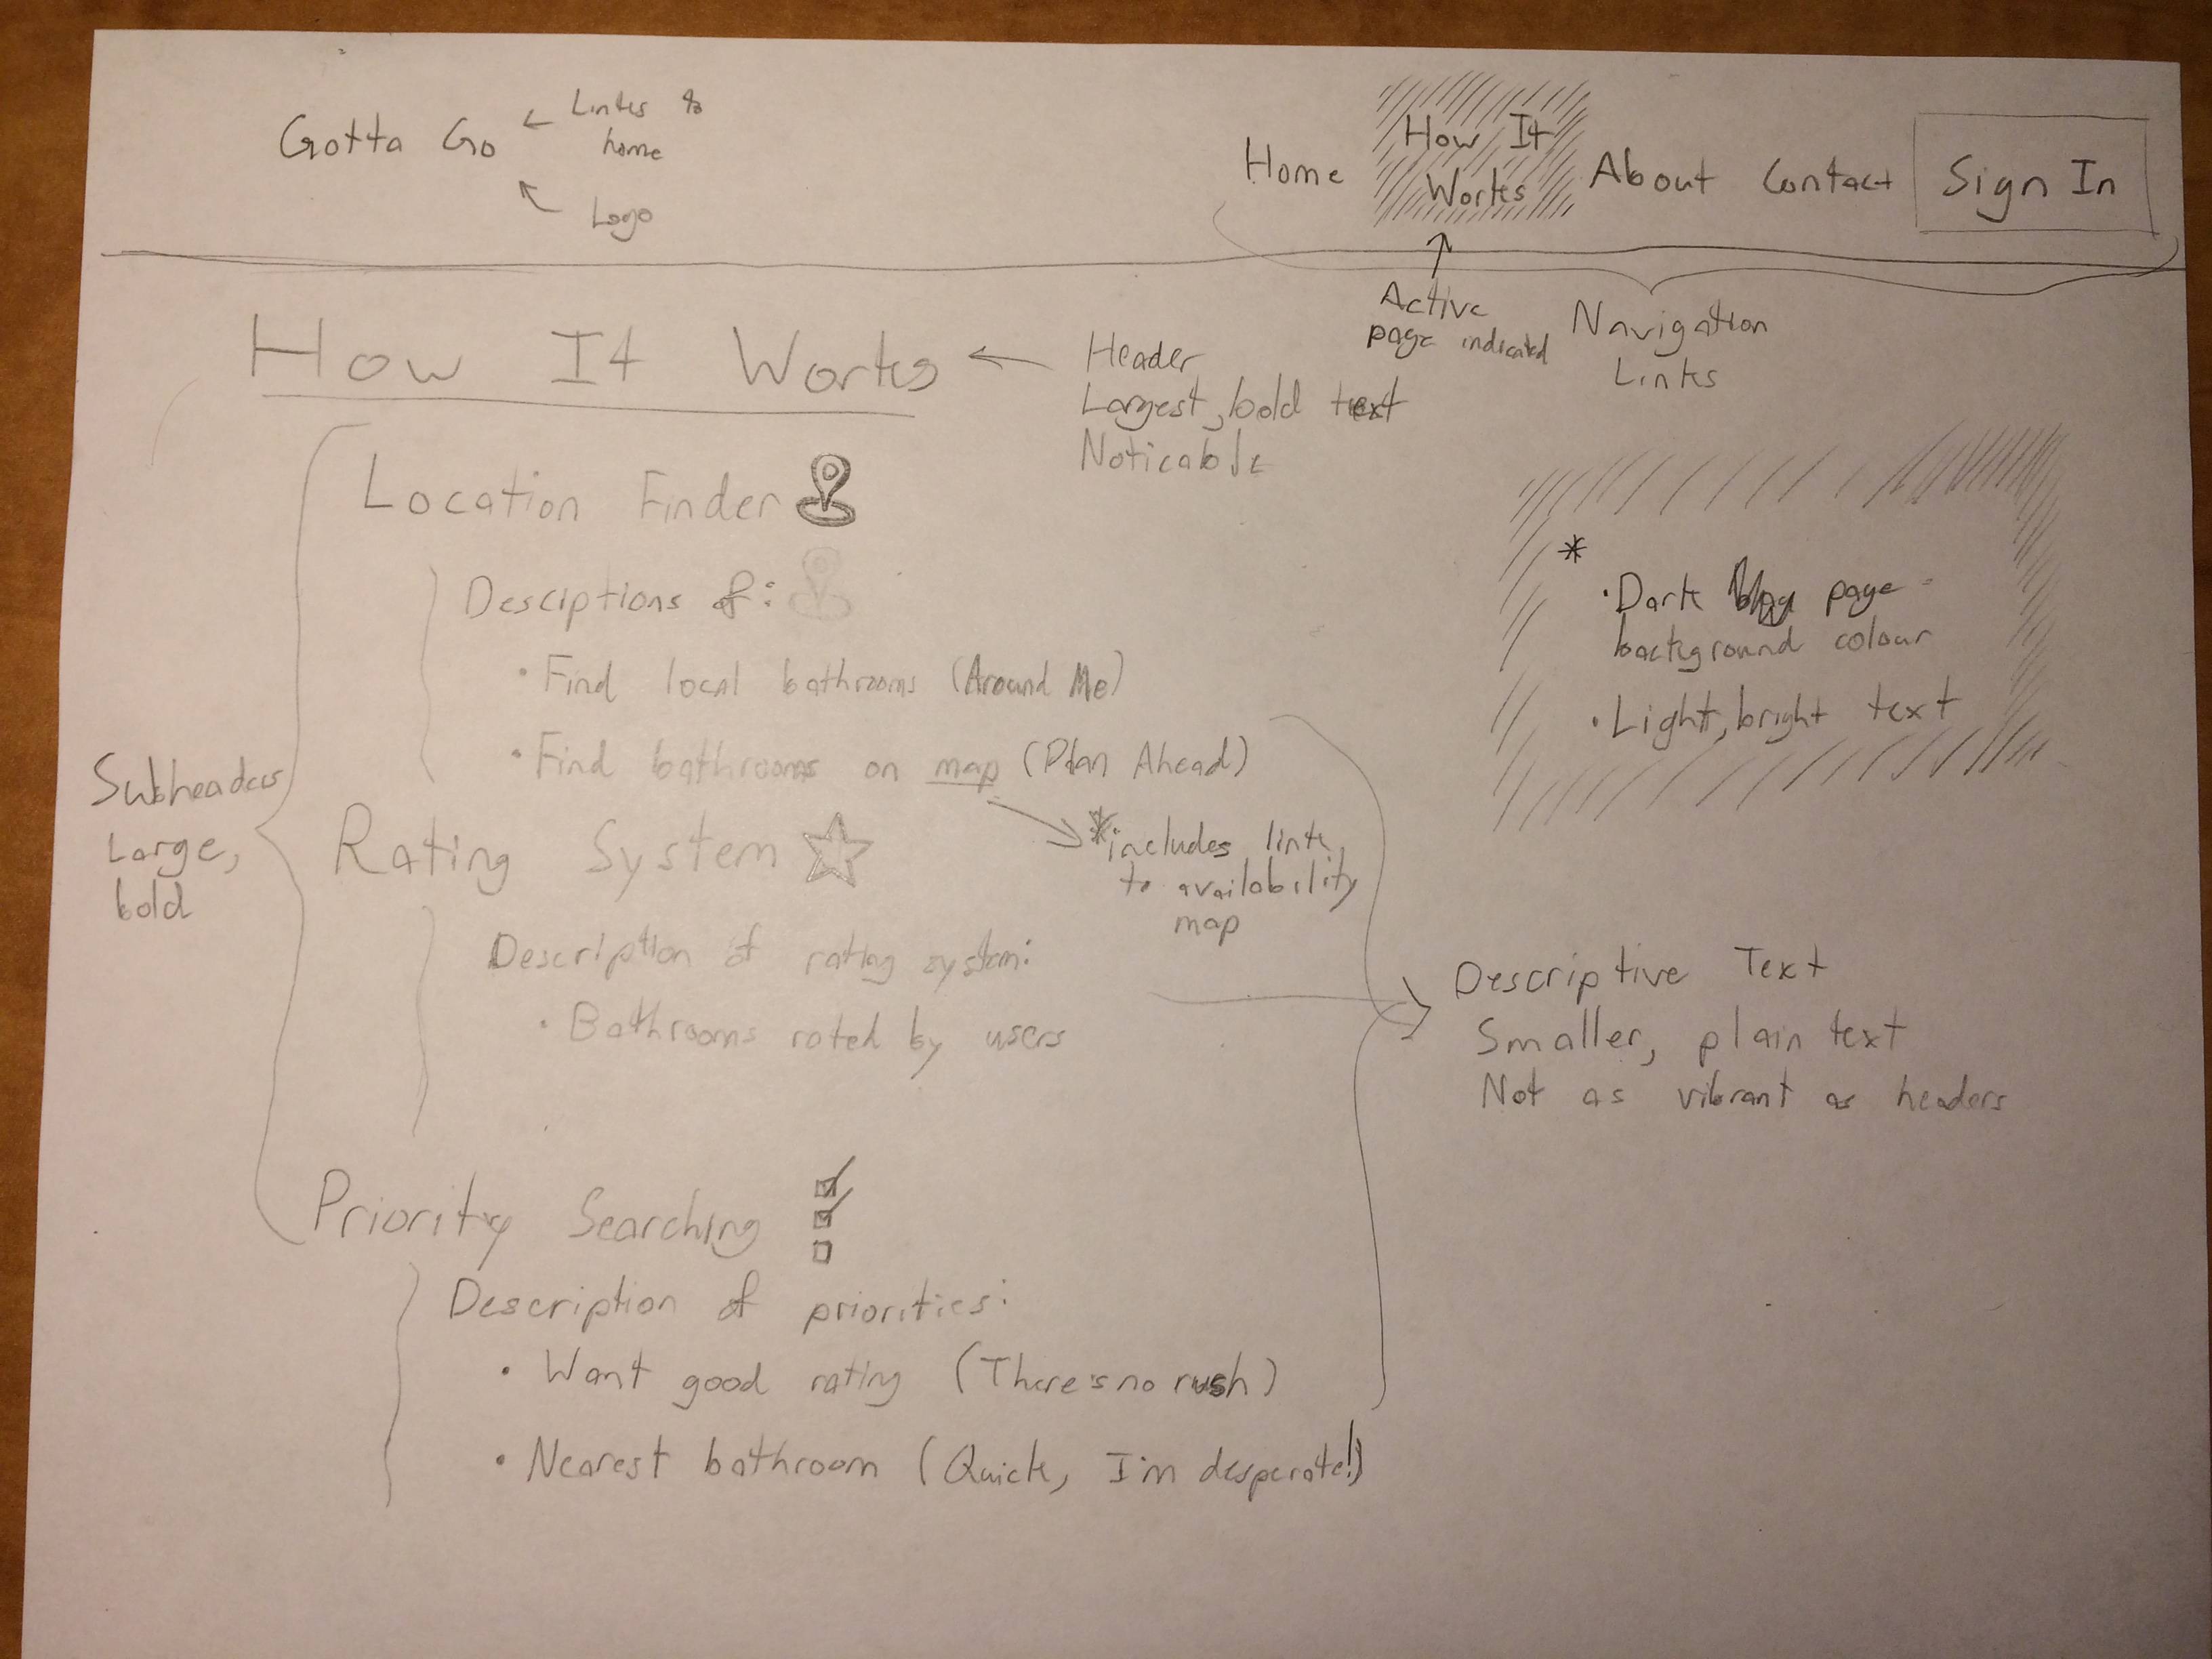 Gotta Go
← Links to home
← Logo
Home
How It
Works
About
Contact
Sign In
Active
page indicated
Navigation
Links
How It Works
← Header
Largest, bold text
Noticable
Subheaders
Large,
bold
Location Finder
Descriptions of:
• Find local bathrooms (Around Me)
• Find bathrooms on map (Plan Ahead)
* includes link
to availability
map
Rating System
Description of rating system:
• Bathrooms rated by users
Priority Searching
Description of priorities:
• Want good rating (There's no rush)
• Nearest bathroom (Quick, I'm desperate!)
*
• Dark page
background colour
• Light, bright text
Descriptive Text
Smaller, plain text
Not as vibrant as headers